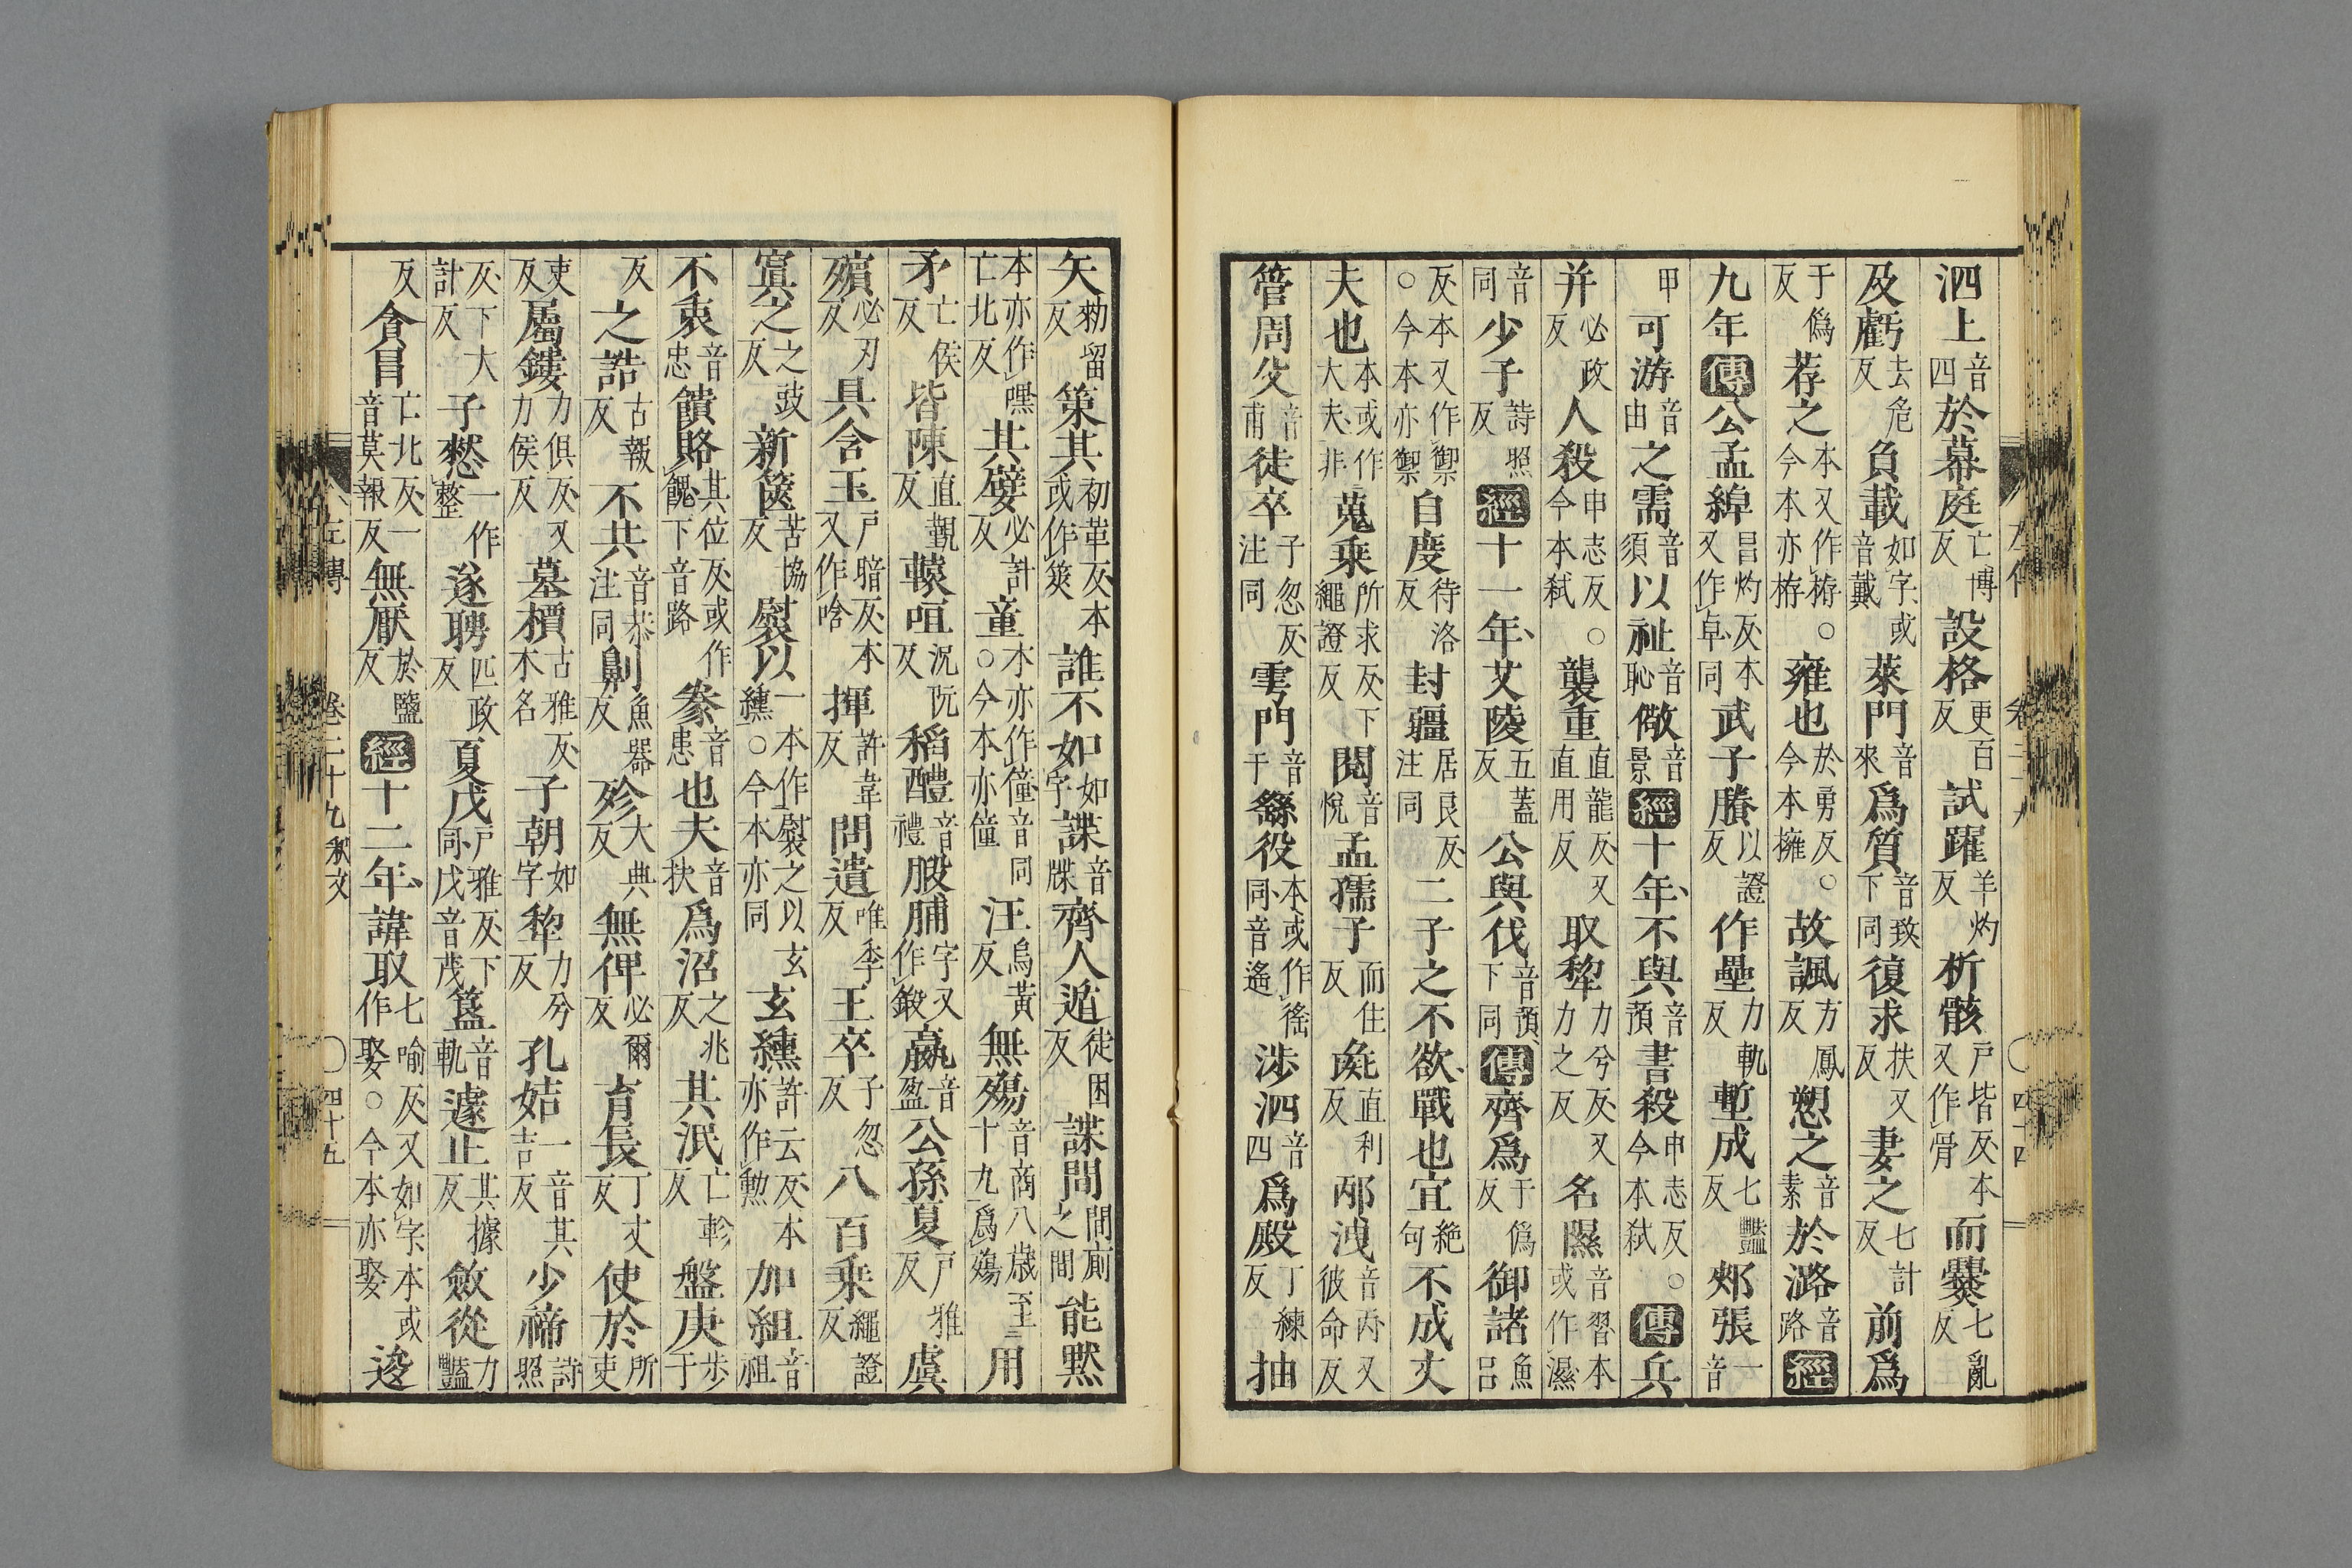 泗上音四於幕庭亡博反設格更百反試躍羊灼反析骸戶皆反本又作骨而爨七亂反
及虧去危反負載如字或音戴萊門音來爲質音致下同復求扶又反妻之七計反前爲
于僞反荐之本又作栫○今本亦栫雍也於勇反○今本擁故諷方鳳反愬之音素於潞音路經
九年傳公孟綽昌灼反本又作卓同武子賸以證反作壘力軌反塹成七豔反郟張一音
甲可游音由之需音須以祉音恥儆音景經十年不與音預書殺申志反○今本弒傳兵
并必政反人殺申志反○今本弒襲重直龍反又直用反取犂力兮反又力之反名隰音習本或作濕
音同少子詩照反經十一年艾陵五蓋反公與伐音預下同傳齊爲于僞反御諸魚呂
反本又作禦○今本亦禦自度待洛反封疆居良反注同二子之不欲戰也宜絶句不成丈
夫也本或作大夫非蒐乘所求反下繩證反閱音悅孟孺子而住反彘直利反邴洩音丙又彼命反
管周父音甫徒卒子忽反注同雩門音于繇役本或作徭同音遙涉泗音四爲殿丁練反抽
矢勑留反策其初革反本或作筴誰不如如字諜音牒齊人遁徒困反諜間間廁之間能黙
本亦作嘿亡北反其嬖必計反童本亦作僮音同○今本亦僮汪烏黃反無殤音商八歲至十九爲殤用
矛亡侯反皆陳直覲反轅咺況阮反稻醴音禮腶脯字又作鍛嬴音盈公孫夏戶雅反虞
殯必刃反具含玉戶暗反本又作唅揮許韋反問遺唯季反王卒子忽反八百乘繩證反
寘之之豉反新篋苦協反褽以一本作褽之以玄纁○今本亦同玄纁許云反本亦作勲加組音祖
不衷音忠饋賂其位反或作餽下音路豢音患也夫音扶爲沼之兆反其泯亡軫反盤庚步于
反之誥古報反不共音恭注同劓魚器反殄大典反無俾必爾反育長丁丈反使於所吏
吏反屬鏤力俱反又力侯反墓檟古雅反木名子朝如字犂力兮反孔姞一音其吉反少禘詩照
反下大計反子憖一作整遂聘匹政反夏戊戶雅反下同戊音茂簋音軌遽止其據反斂從力豔
反貪冒亡北反一音莫報反無厭於鹽反經十二年諱取七喻反又如字本或作娶○今本亦娶逡
左傳 卷二十九釋文 四十五